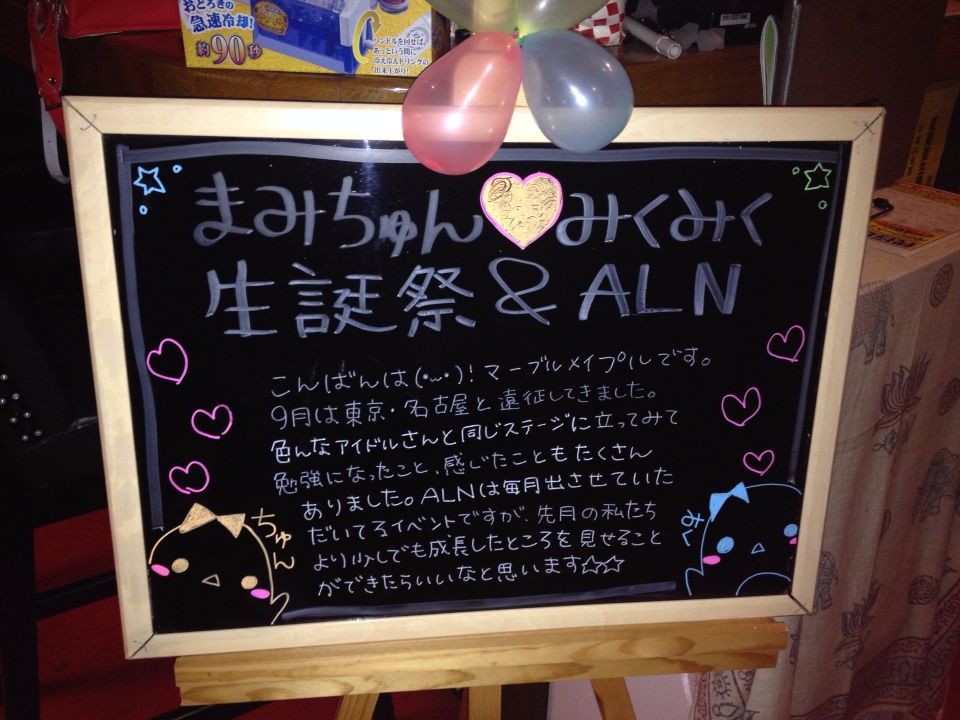 おどろきの
急速冷却!
約90秒
ハンドルを回せば、
あっという間に
冷え冷えドリンクの
出来上がり!
まみちゅん みくみく
生誕祭&ALN
こんばんは(・ω・)!マーブルメイプルです。
9月は東京・名古屋と遠征してきました。
色んなアイドルさんと同じステージに立ってみて
勉強になったこと、感じたこともたくさん
ありました。ALNは毎月出させていた
だいてるイベントですが、先月の私たち
より少しでも成長したところを見せること
ができたらいいなと思います☆☆
ちゅん
みく